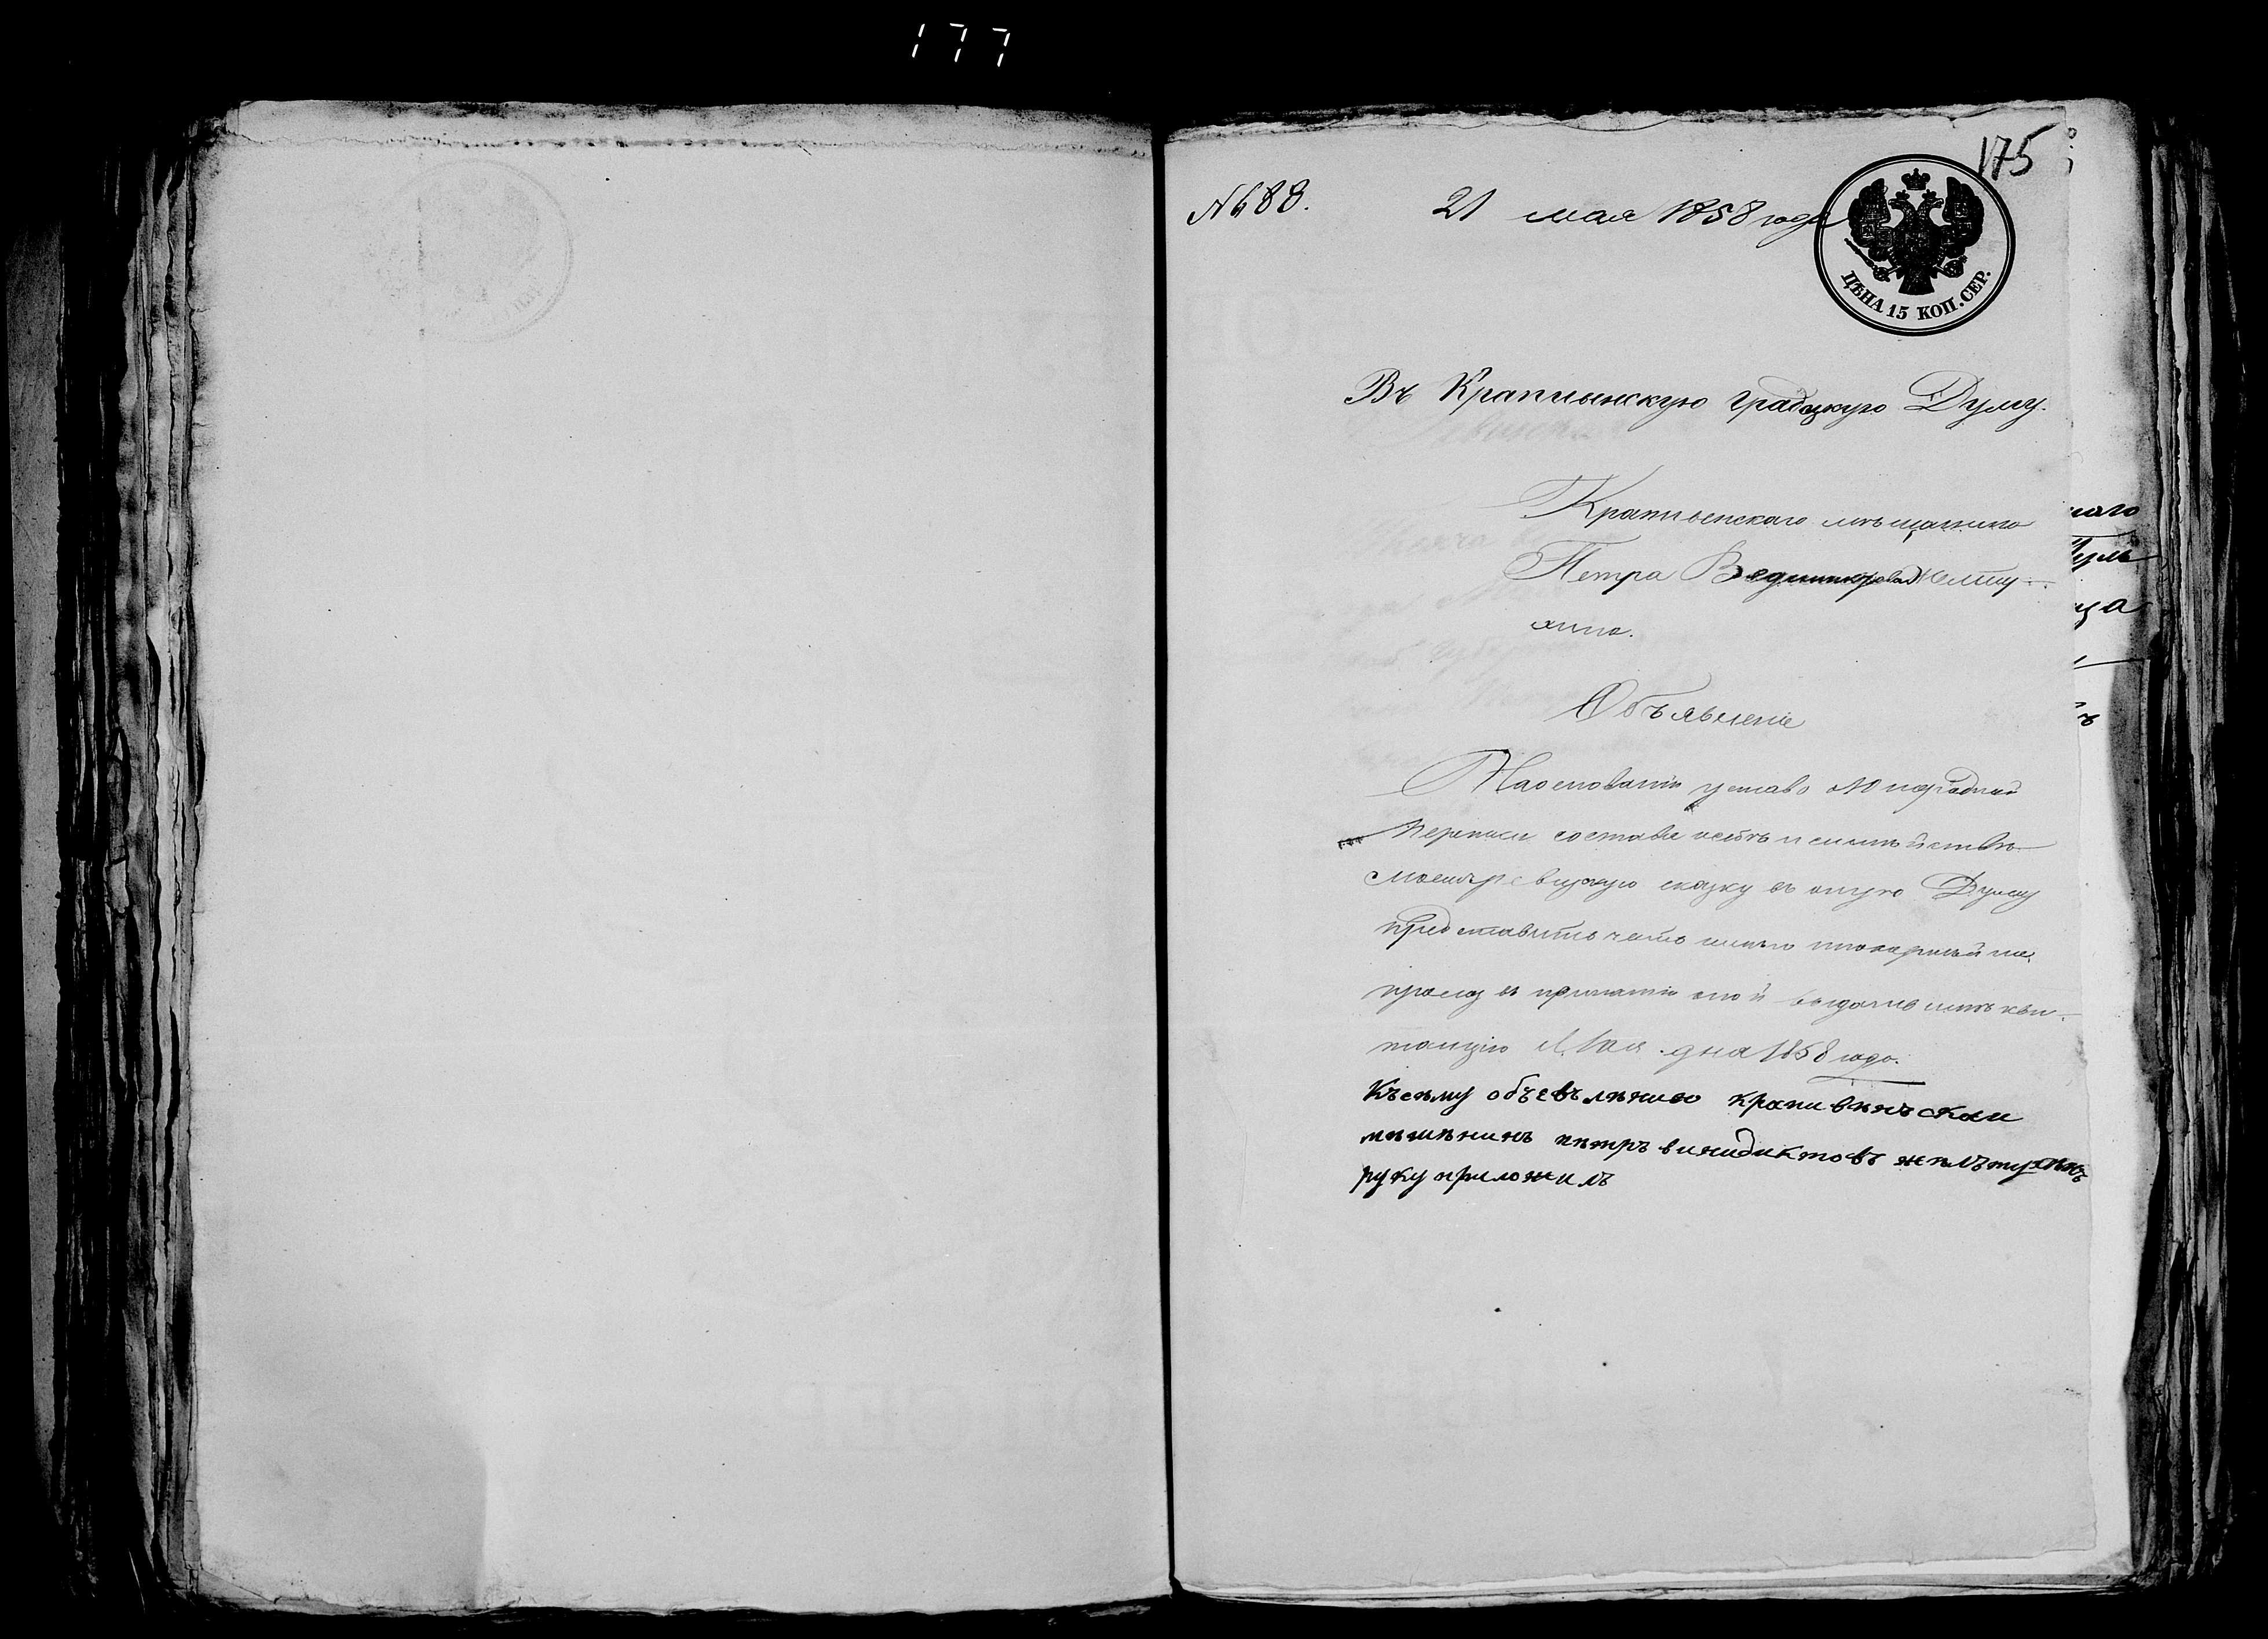 177
175
№ 688.
21 мая 1858 года
ЦѢНА 15 КОП. СЕР.
Въ Крапивенскую градскую Думу.
Крапивенскаго мѣщанина
Петра Ведиктова Желту-
хина.
Объявленіе
На основаніи устава о 10 народной
переписи составя о себѣ и семѣйствѣ
моемъ ревизкую сказку въ оную Думу
представить честь имѣю покорнѣйше
прошу въ принятіи оной выдать мнѣ кви-
танцію Мая дня 1858 года.
Къ сѣму объевълѣнию крапивѣнъскаи
мѣшенинъ пѣтръ винидиктовъ жѣлътухинъ
руку приложилъ